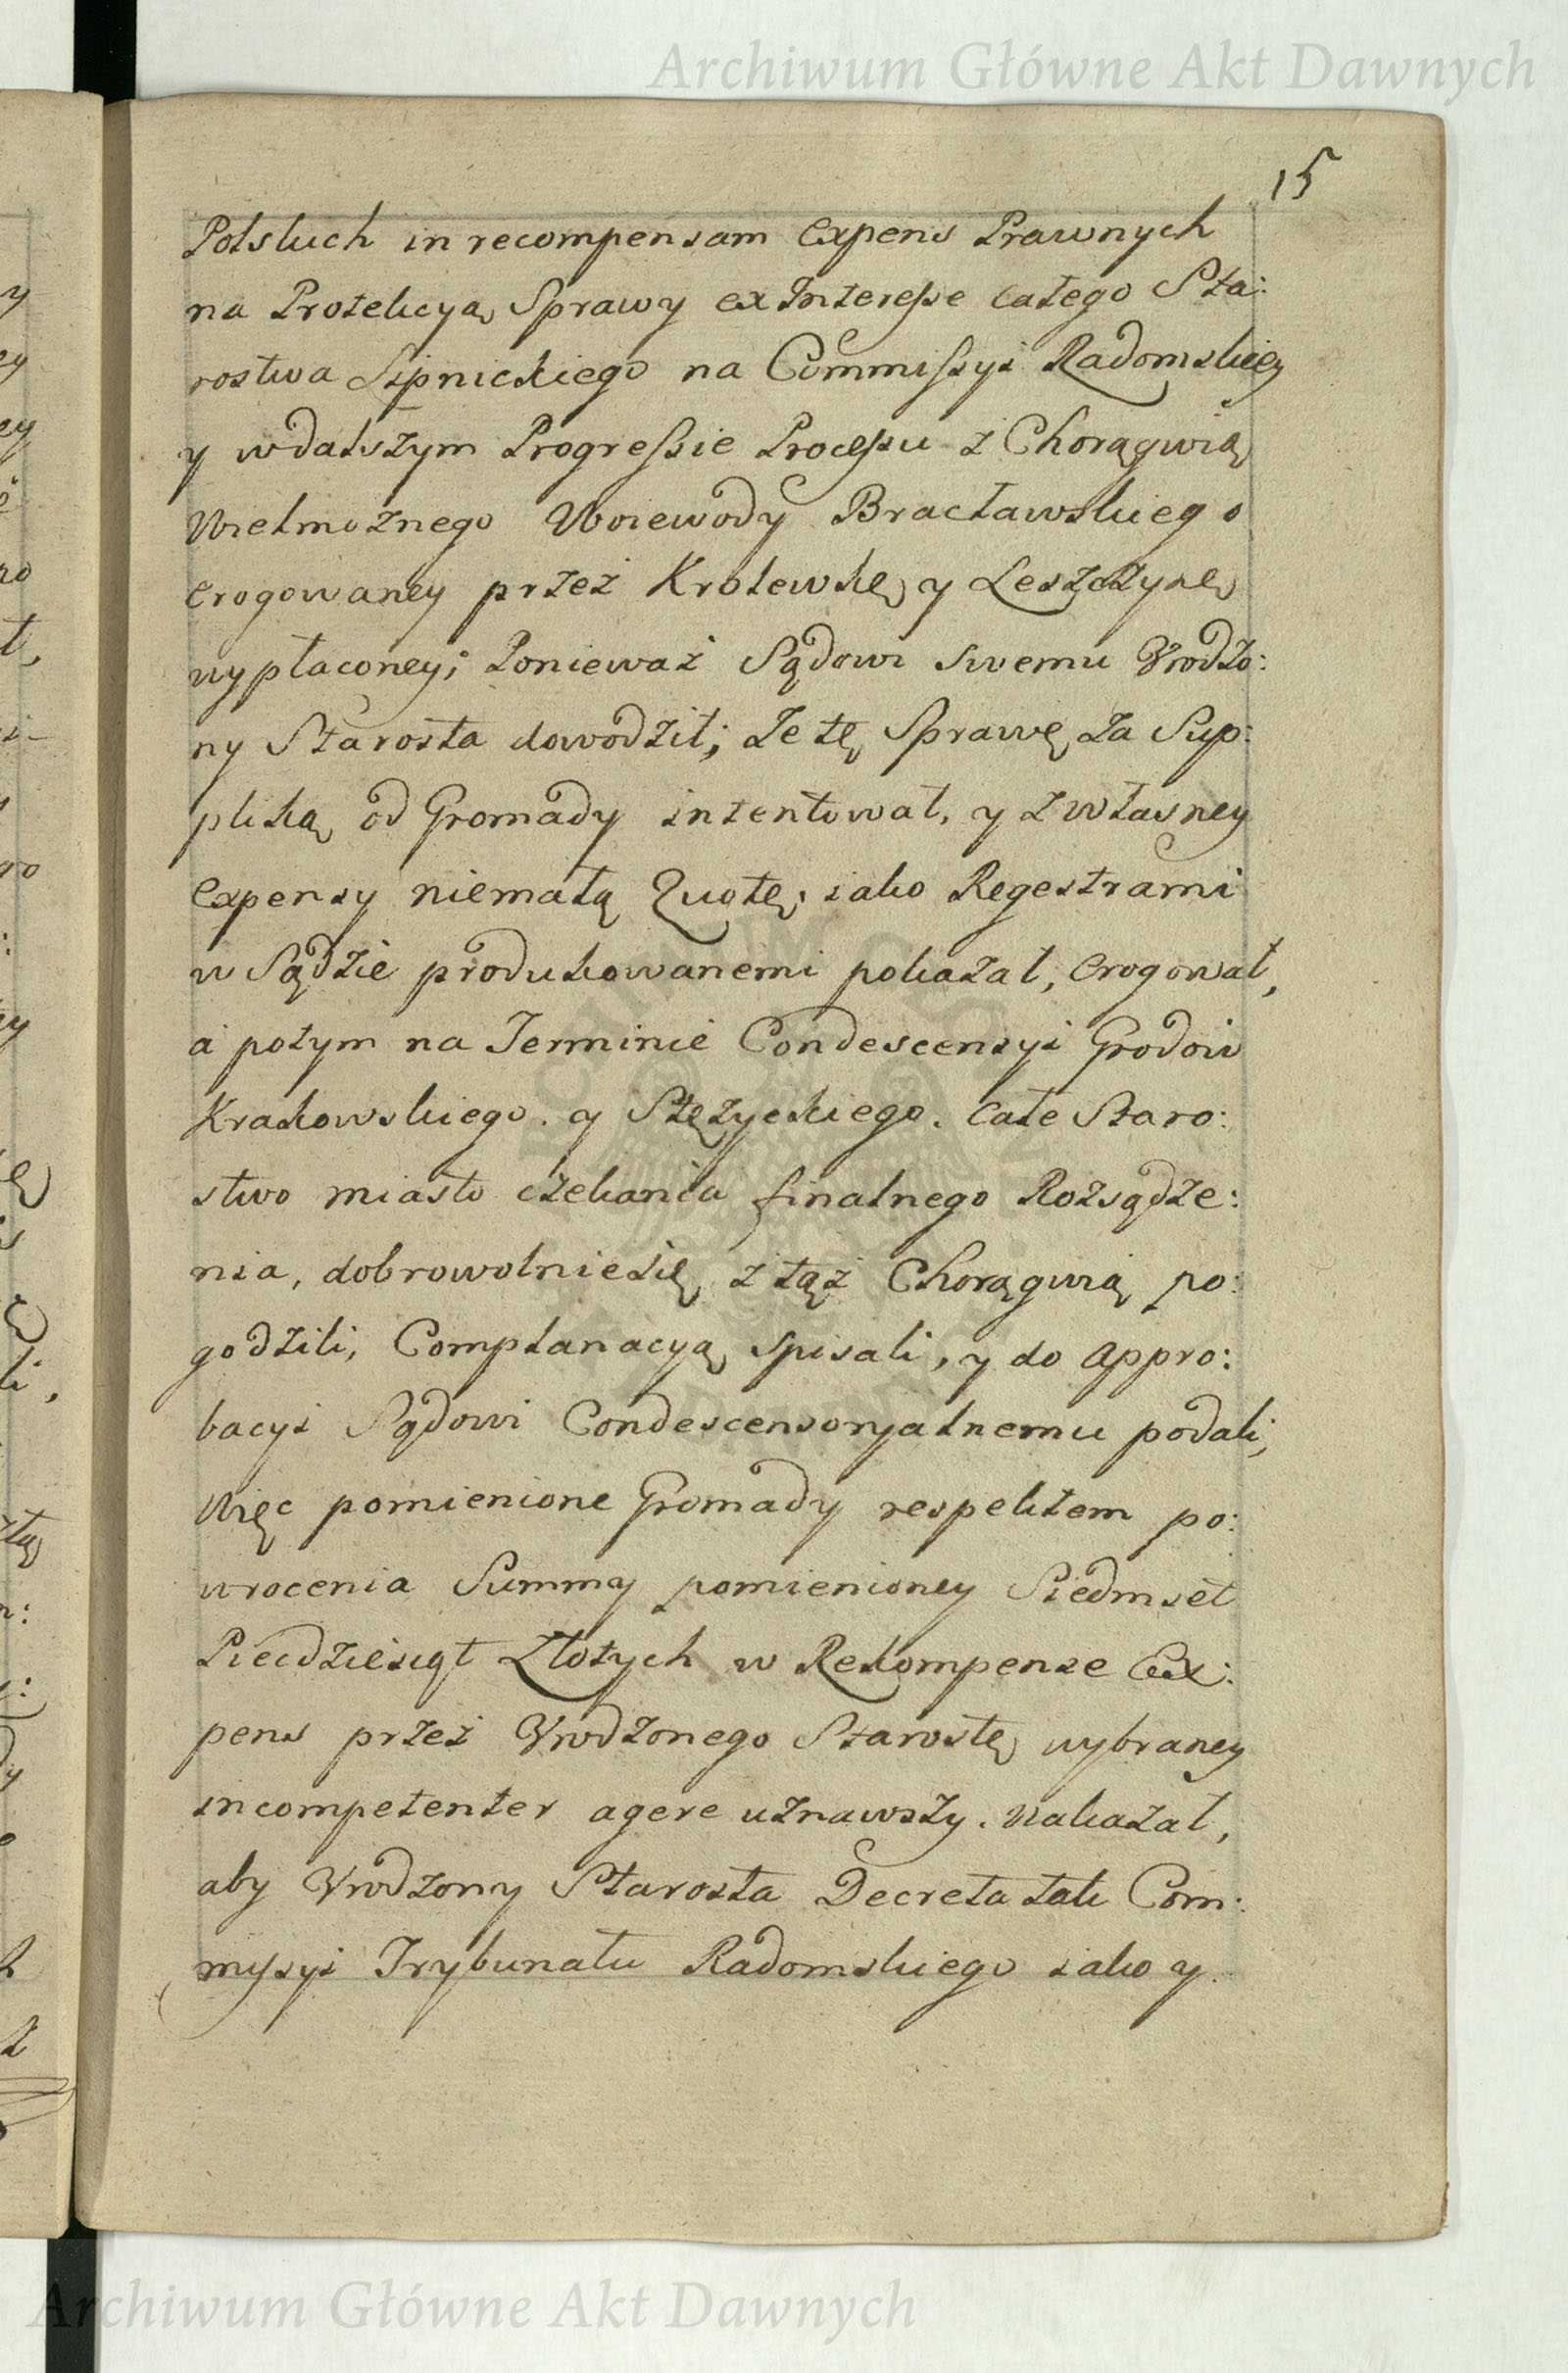 Archiwum Główne Akt Dawnych
15
Polskich in recompensam Expens Prawnych
na Protekcyą Sprawy ex Interesse całego Sta:
rostwa Lipnickiego na Commissyi Radomskiey
y wdalszym Progressie Processu z Chorągwią
Wielmożnego Woiewody Bracławskiego
erogowaney przez Krolewkę y Leszczynę
wypłaconey; Ponieważ Sądowi swemu Vrodzo:
ny Starosta dowodził; Że tę Sprawę za Sup:
pliką od Gromady intentował, y z własney
expensy niemałą Quotę, iako Regestrami
w Sądzie produkowanemi pokazał, erogował,
a potym na Terminie Condescensyi Grodow
Krakowskiego. y Stężyckiego. całe Staro:
stwo miasto czekania finalnego Rozsądze:
nia, dobrowolnie się z tąż Chorągwią po:
godzili, Complanacyą spisali, y do Appro:
bacyi Sądowi Condescensoryalnemu podali,
Więc pomienione Gromady respektem po:
wrocenia Summy pomienioney Siedmset
Piedziesiąt Złotych w Rekompense Ex:
pens przez Vrodzonego Starostę wybraney
incompetenter agere uznawszy. Nakazał,
aby Vrodzony Starosta Decreta tak Com:
mysyi Trybunału Radomskiego iako y
Archiwum Główne Akt Dawnych